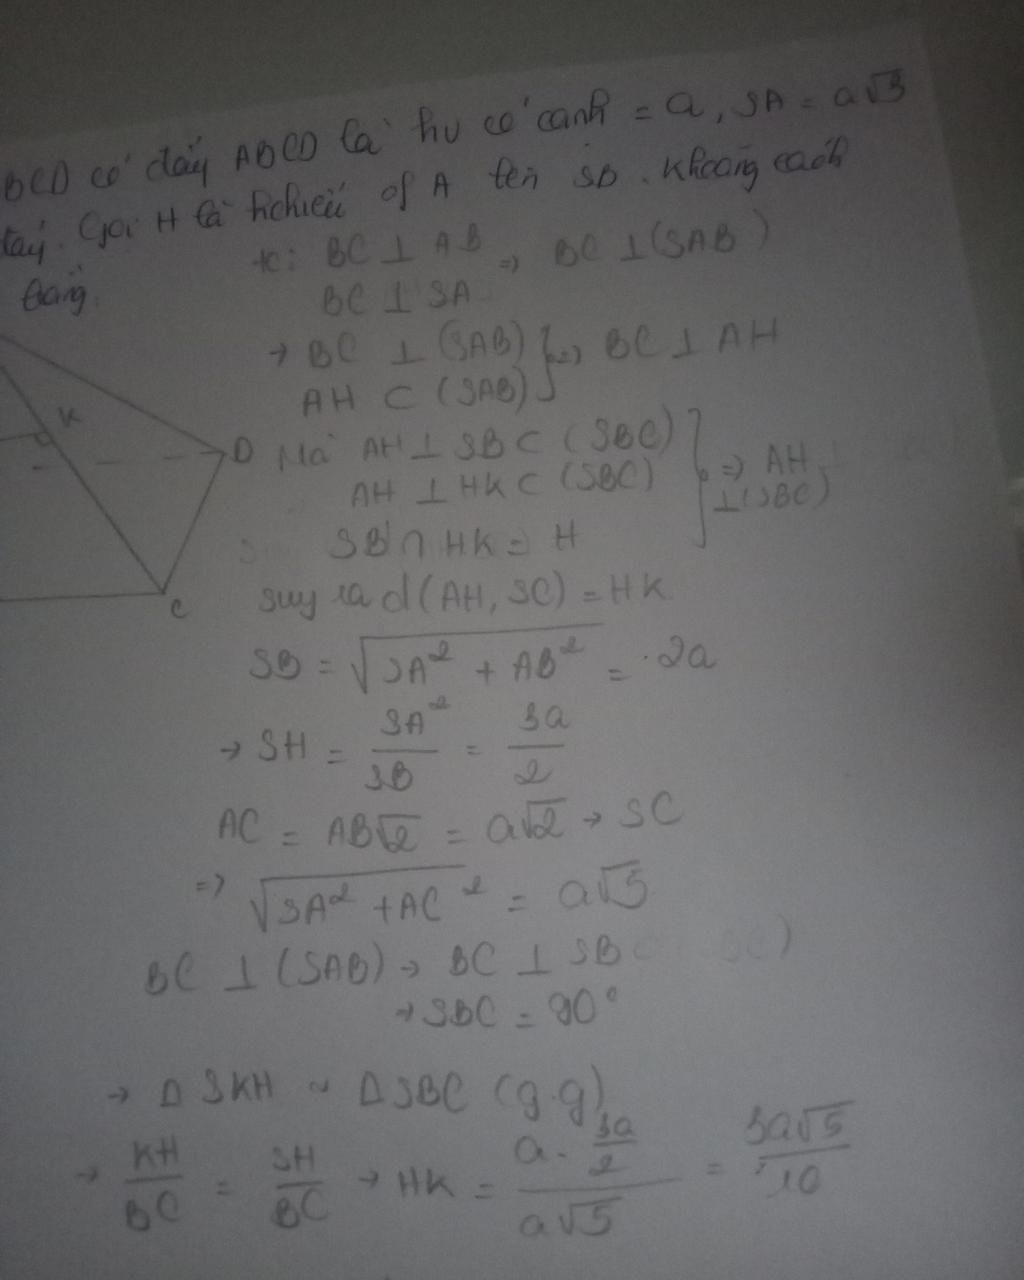 BCD có đáy ABCD là hv có cạnh = a, SA = a√3
đáy. Gọi H là hchiếu of A lên SB. Khoảng cách
bằng.
tc: BC ⊥ AB => BC ⊥ (SAB)
BC ⊥ SA
→ BC ⊥ (SAB) } => BC ⊥ AH
AH ⊂ (SAB)
K
D
Mà AH ⊥ SB ⊂ (SBC) } => AH ⊥ (SBC)
AH ⊥ HK ⊂ (SBC)
SB ∩ HK = H
C
suy ra d(AH, SC) = HK
SB = √(SA² + AB²) = 2a
→ SH = SA²/SB = 3a/2
AC = AB√2 = a√2 → SC
=> √(SA² + AC²) = a√5
BC ⊥ (SAB) → BC ⊥ SB
→ SBC = 90°
→ Δ SKH ~ Δ SBC (g.g)
→ KH/BC = SH/BC → HK = (a . 3a/2)/(a√5) = 3a√5/10